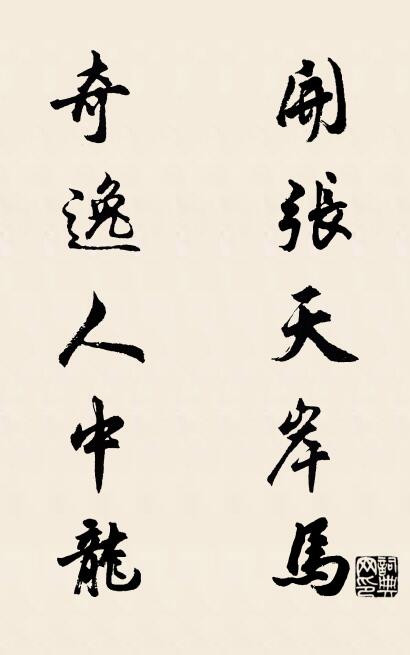 開張天岸馬
奇逸人中龍
詞典网印